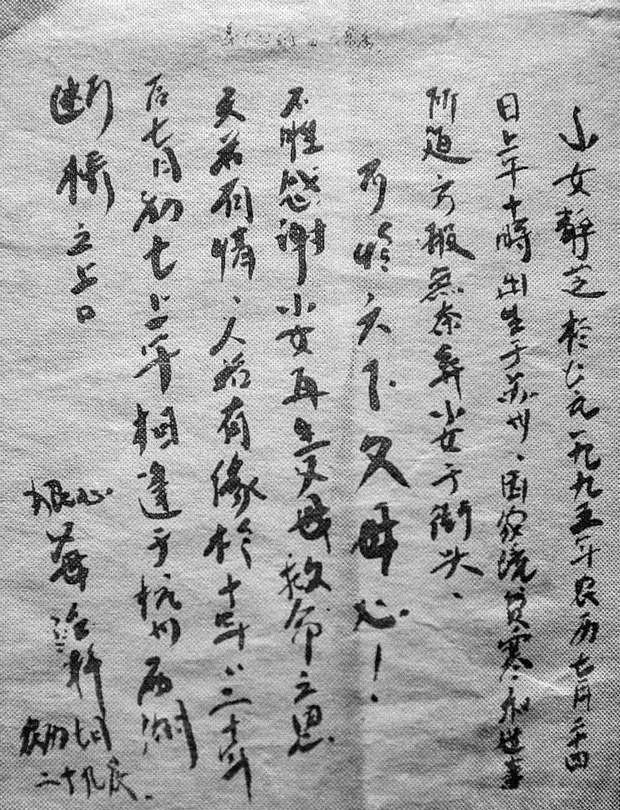 小女静芝於公元一九九五年农历七月二十四
日上午十時出生于苏州、因家境貧寒和世事
所迫、万般無奈弃小女于街头、
可怜天下父母心！
不胜感谢小女再生父母救命之恩
天若有情、人若有缘於十年以二十年
后七月初七上午相逢于杭州西湖
断桥之上口
狠心
农历七月
二十九